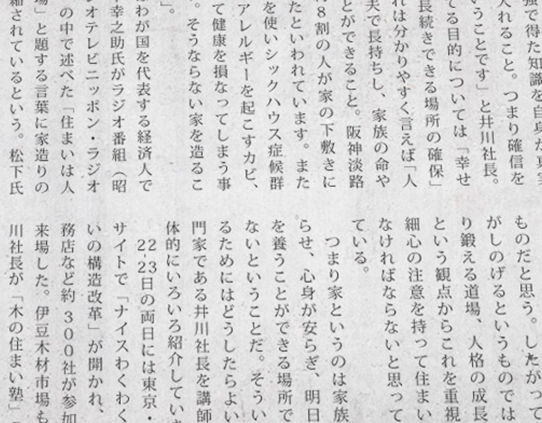 強で得た知識を自身が実
入れること。つまり確信を
いうことです」と井川社長。
てる目的については「幸せ
長続きできる場所の確保」
れは分かりやすく言えば「人
夫で長持ちし、家族の命や
とができること。阪神淡路
8割の人が家の下敷きに
たといわれています。また
を使いシックハウス症候群
アレルギーを起こすカビ、
て健康を損なってしまう事
。そうならない家を造るこ
」。
わが国を代表する経済人で
幸之助氏がラジオ番組（昭
ジオテレビニッポン・ラジオ
の中で述べた「住まいは人
場」と題する言葉に家造りの
縮されているという。松下氏
ものだと思う。したがって
がしのげるというものでは
り鍛える道場、人格の成長
という観点からこれを重視
細心の注意を持って住まい
なければならないと思って
ている。
つまり家というのは家族
らせ、心身が安らぎ、明日
を養うことができる場所で
ないということだ。そうい
るためにはどうしたらよい
門家である井川社長を講師
体的にいろいろ紹介していき
22、23日の両日には東京・
サイトで「ナイスわくわく
いの構造改革」が開かれ、
務店など約300社が参加
来場した。伊豆木材市場も
川社長が「木の住まい塾」